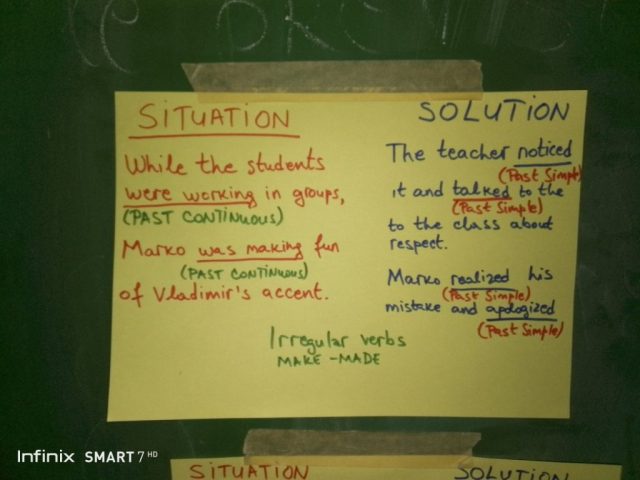 SITUATION
While the students
were working in groups,
(PAST CONTINUOUS)
Marko was making fun
(PAST CONTINUOUS)
of Vladimir's accent.
SOLUTION
The teacher noticed
(Past Simple)
it and talked to the
(Past Simple)
to the class about
respect.
Marko realized his
(Past Simple)
mistake and apologized
(Past Simple)
Irregular verbs
MAKE - MADE
SITUATION
SOLUTION
Infinix SMART 7 HD